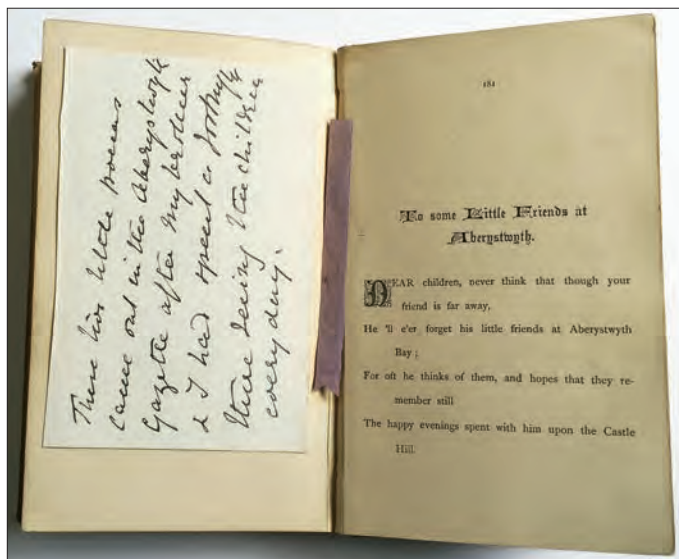 These two little poems
came out in the Aberystwyth
Gazette after my brother
& I had spent a fortnight
there seeing the children
every day.
181
To some Little Friends at
Aberystwyth.
DEAR children, never think that though your
friend is far away,
He 'll e'er forget his little friends at Aberystwyth
Bay ;
For oft he thinks of them, and hopes that they re-
member still
The happy evenings spent with him upon the Castle
Hill.